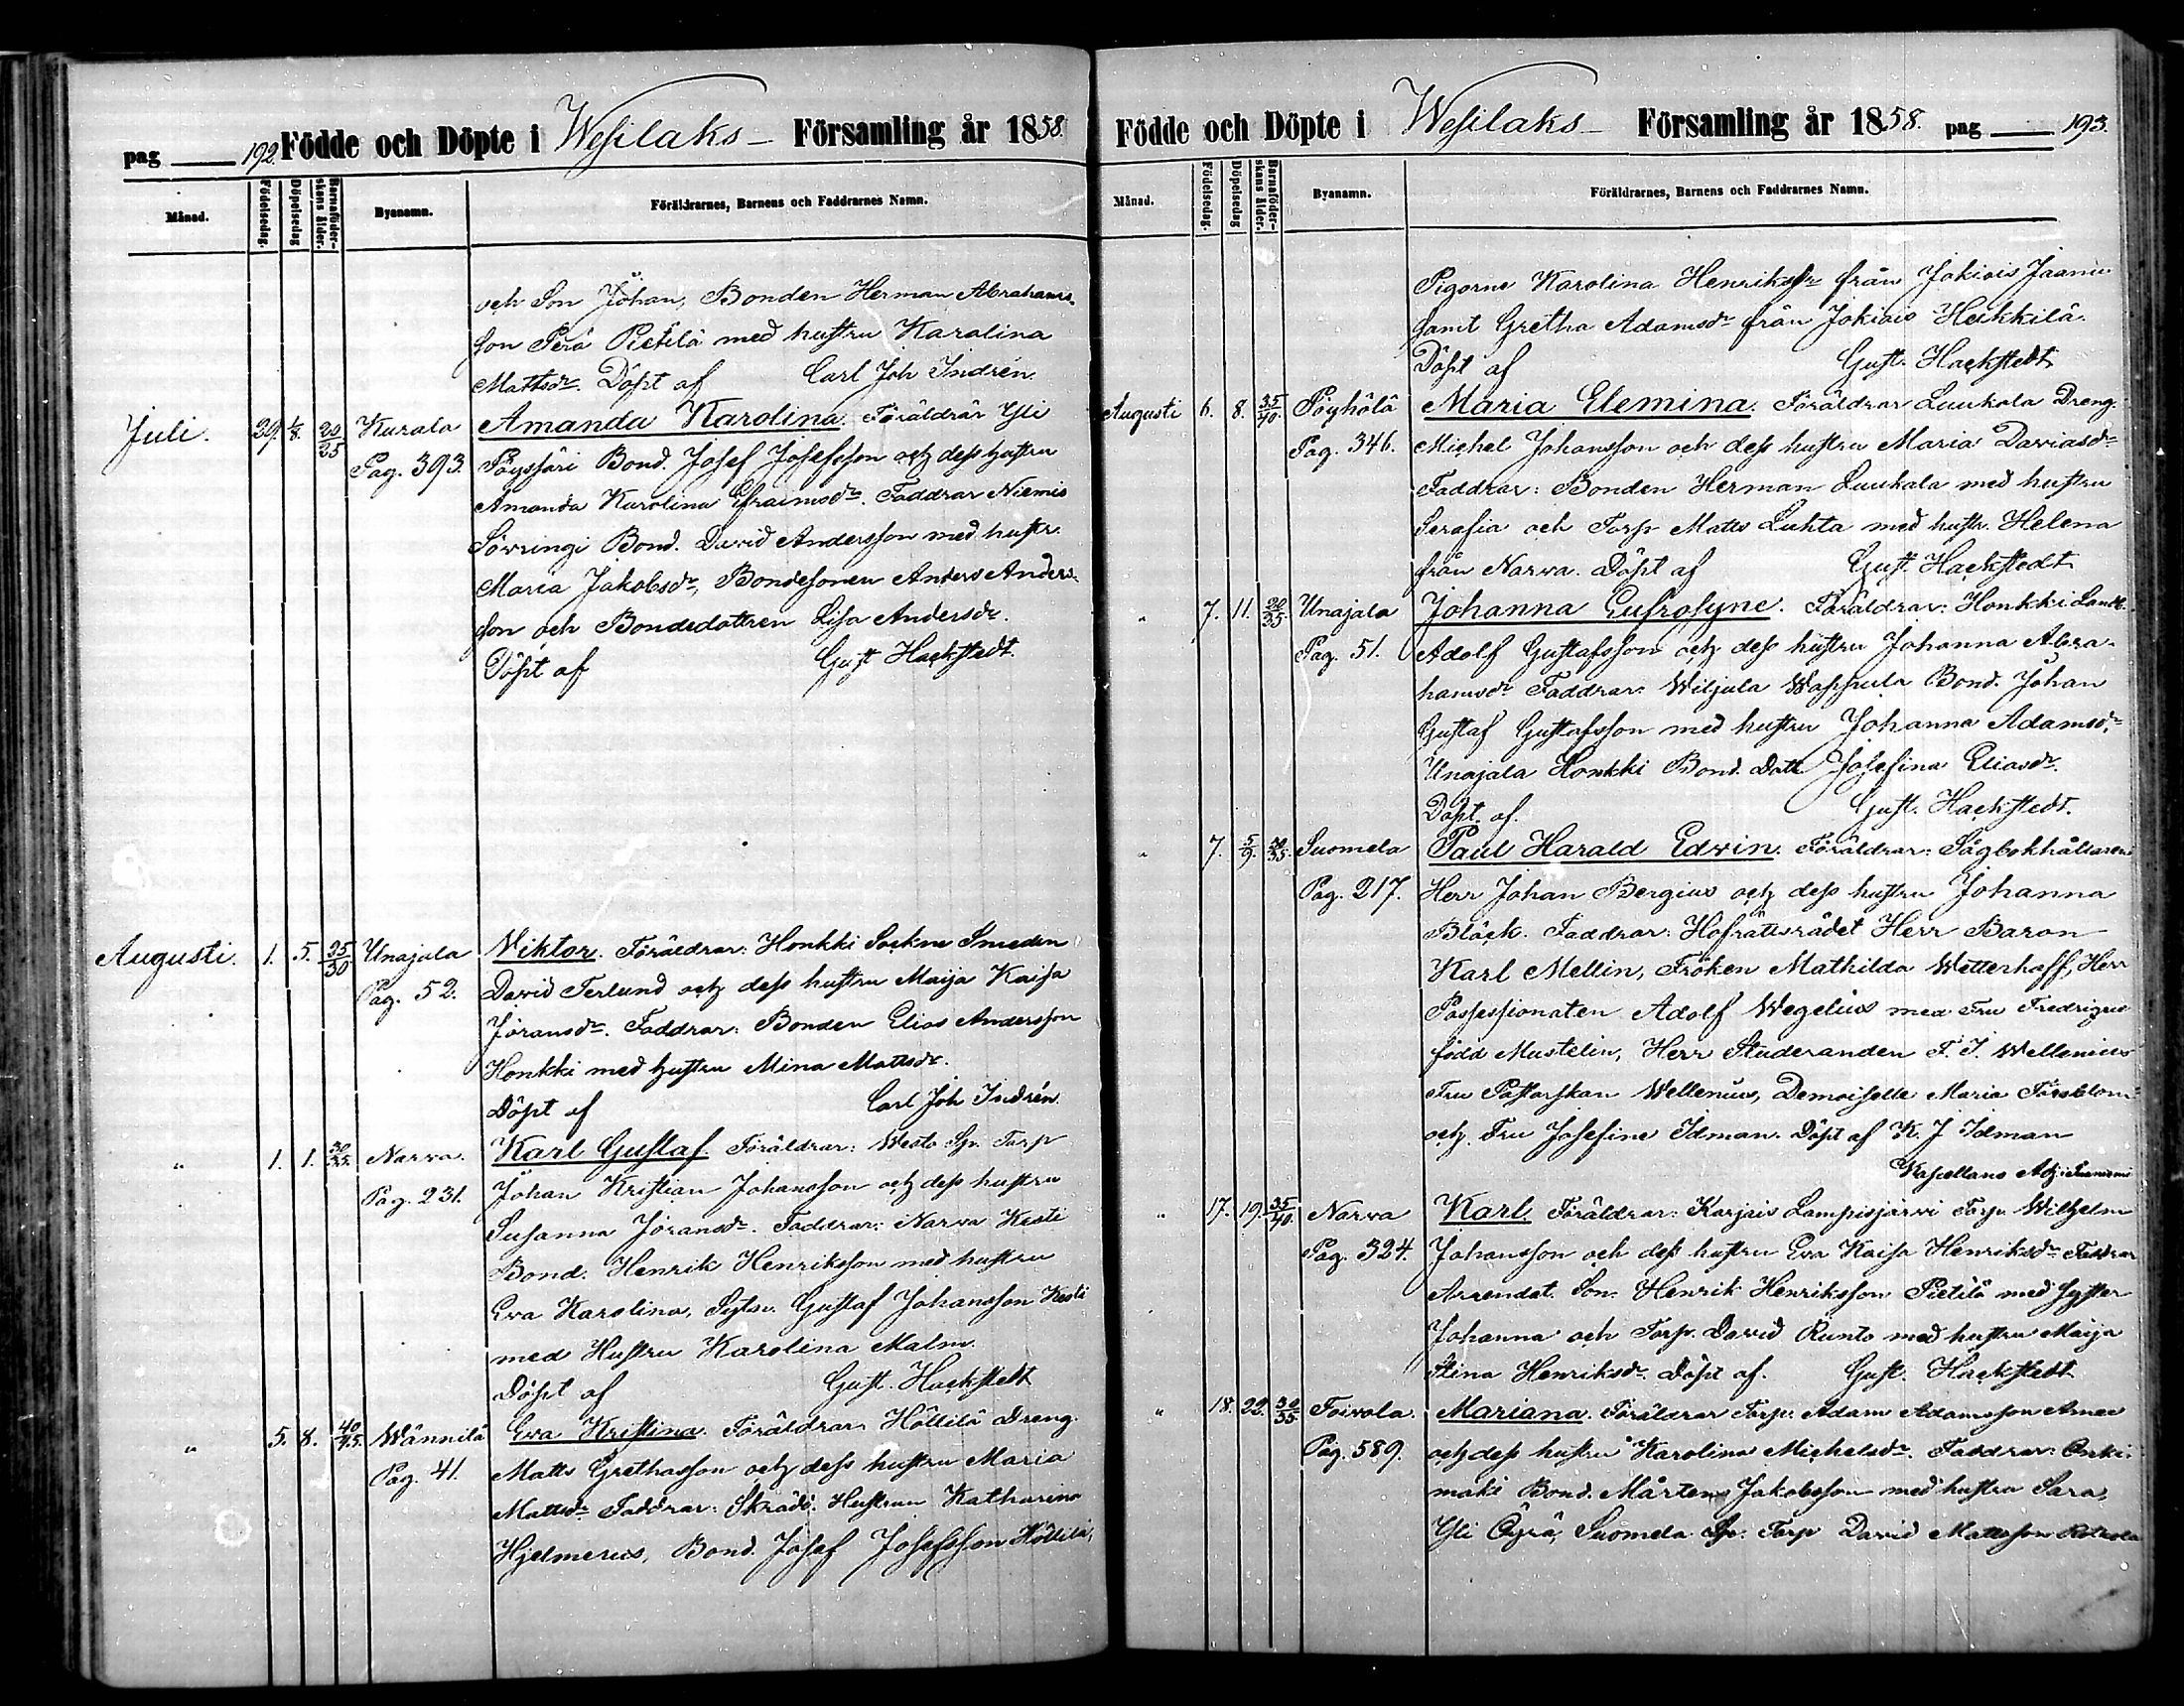 pag 192. Födde och Döpte i Wesilaks Församling år 1858.
Månad. Födelsedag. Döpelsedag Barnaföderskans ålder. Byanamn. Föräldrarnes, Barnens och Faddrarnes Namn.
och Son Johan, Bonden Herman Abrahams-
son Perä Pietilä med hustru Karalina
Mattsdr. Döpt af Carl Joh Indrén.
Juli. 29. 1/8. 20/25 Kurala Amanda Karolina. Föräldrar Yli
Pag. 393. Pöyssäri Bond. Josef Josefsson och dess hustru
Amanda Karolina Efraimsdr. Faddrar Niemis
Sövringi Bond. David Andersson med hustr.
Maria Jakobsdr, Bondesonen Anders Anders-
son och Bondedottren Lisa Andersdr.
Döpt af Gust Hackstedt.
Augusti. 1. 5. 25/30 Unajala Viktor. Föräldrar: Honkki Sockne Smeden
Pag. 52. David Terlund och dess hustru Maija Kaisa
Jöransdr. Faddrar: Bonden Elias Andersson
Honkki med hustru Mina Mattsdr.
Döpt af Carl Joh Indrén.
" 1. 1. 30/35. Narva. Karl Gustaf. Föräldrar: Westo Sp. Torp
Pag. 231. Johan Kristian Johansson och dess hustru
Susanna Jöransdr. Faddrar: Narva Kesti
Bond. Henrik Henriksson med hustru
Eva Karolina, Sytn. Gustaf Johansson Kesti
med Hustru Karolina Malm.
Döpt af Gust. Hackstedt
" 5. 8. 40/45. Wännilä Eva Kristina. Föräldrar Höllilä Dreng.
Pag. 41. Matts Grethasson och dess hustru Maria
Mattsdr Faddrar: Skrädd. Hustrun Katharina
Hjelmerus, Bond. Josef Josefsson Höllilä,
Födde och Döpte i Wesilaks Församling år 1858. pag 193.
Månad. Födelsedag. Döpelsedag Barnaföderskans ålder. Byanamn. Föräldrarnes, Barnens och Faddrarnes Namn.
Pigorne Karolina Henriksdr från Jokiois Jaanu
samt Gretha Adamsdr från Jokiois Heikkilä.
Döpt af Gust. Hackstedt
Augusti 6. 8. 35/40. Pöyhölä Maria Elemina. Föräldrar Luukala Dreng.
Pag. 346. Michel Johansson och dess hustru Maria Davidsdr
Faddrar: Bonden Herman Luukala med hustru
Serafia och Torp. Matts Luhta med hustr. Helena
från Narva. Döpt af Gust. Hackstedt
" 7. 11. 30/35. Unajala Johanna Eufrosyne. Föräldrar: Honkki Landb.
Pag. 51. Adolf Gustafsson och dess hustru Johanna Abra-
hamsdr Faddrar: Wiljula Wappula Bond. Johan
Gustaf Gustafsson med hustru Johanna Adamsdr,
Unajala Honkki Bond. Dott. Josefina Eliasdr.
Döpt. af. Gust. Hackstedt.
" 7. 5/9. 30/35. Suomela Paul Harald Edvin. Föräldrar: Sågbokhållaren
Pag. 217. Herr Johan Bergius och dess hustru Johanna
Bläck. Faddrar: Hofrättsrådet Herr Baron
Karl Mellin, Fröken Mathilda Wetterhoff, Herr
Possessionaten Adolf Wegelius med Fru Fredrique
född Mustelin, Herr Studeranden F. I. Wellenius
Fru Pastorskan Wellenius, Demoiselle Maria Forsblom
och Fru Josefine Idman. Döpt af K. J Idman
Kapellans Adj.
" 17. 19. 35/40. Narva Karl. Föräldrar: Karjais Lampisjärvi Torp. Wilhelm
Pag. 324. Johansson och dess hustru Eva Kaisa Henriksdr Faddrar
Arrendat. Son. Henrik Henriksson Pietilä med syster
Johanna och Torp. David Runto med hustru Maija
Stina Henriksdr. Döpt af. Gust. Hackstedt
" 18. 22. 30/35. Toivola. Mariana. Föräldrar Torp. Adam Adamsson Amee
Pag. 589. och dess hustru Karolina Michelsdr. Faddrar: Onki-
mäki Bond. Mårten Jakobsson med hustru Sara,
Yli Äyrä, Suomela Sp. Torp David Mattsson Rotkola